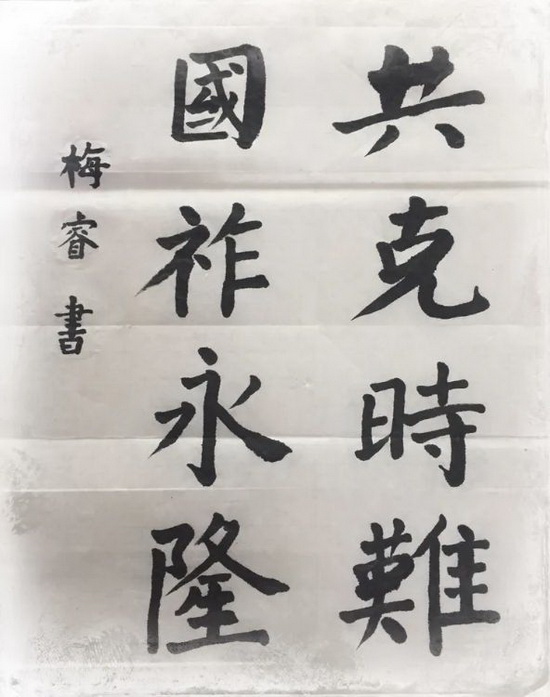 共克時難
國祚永隆
梅睿書